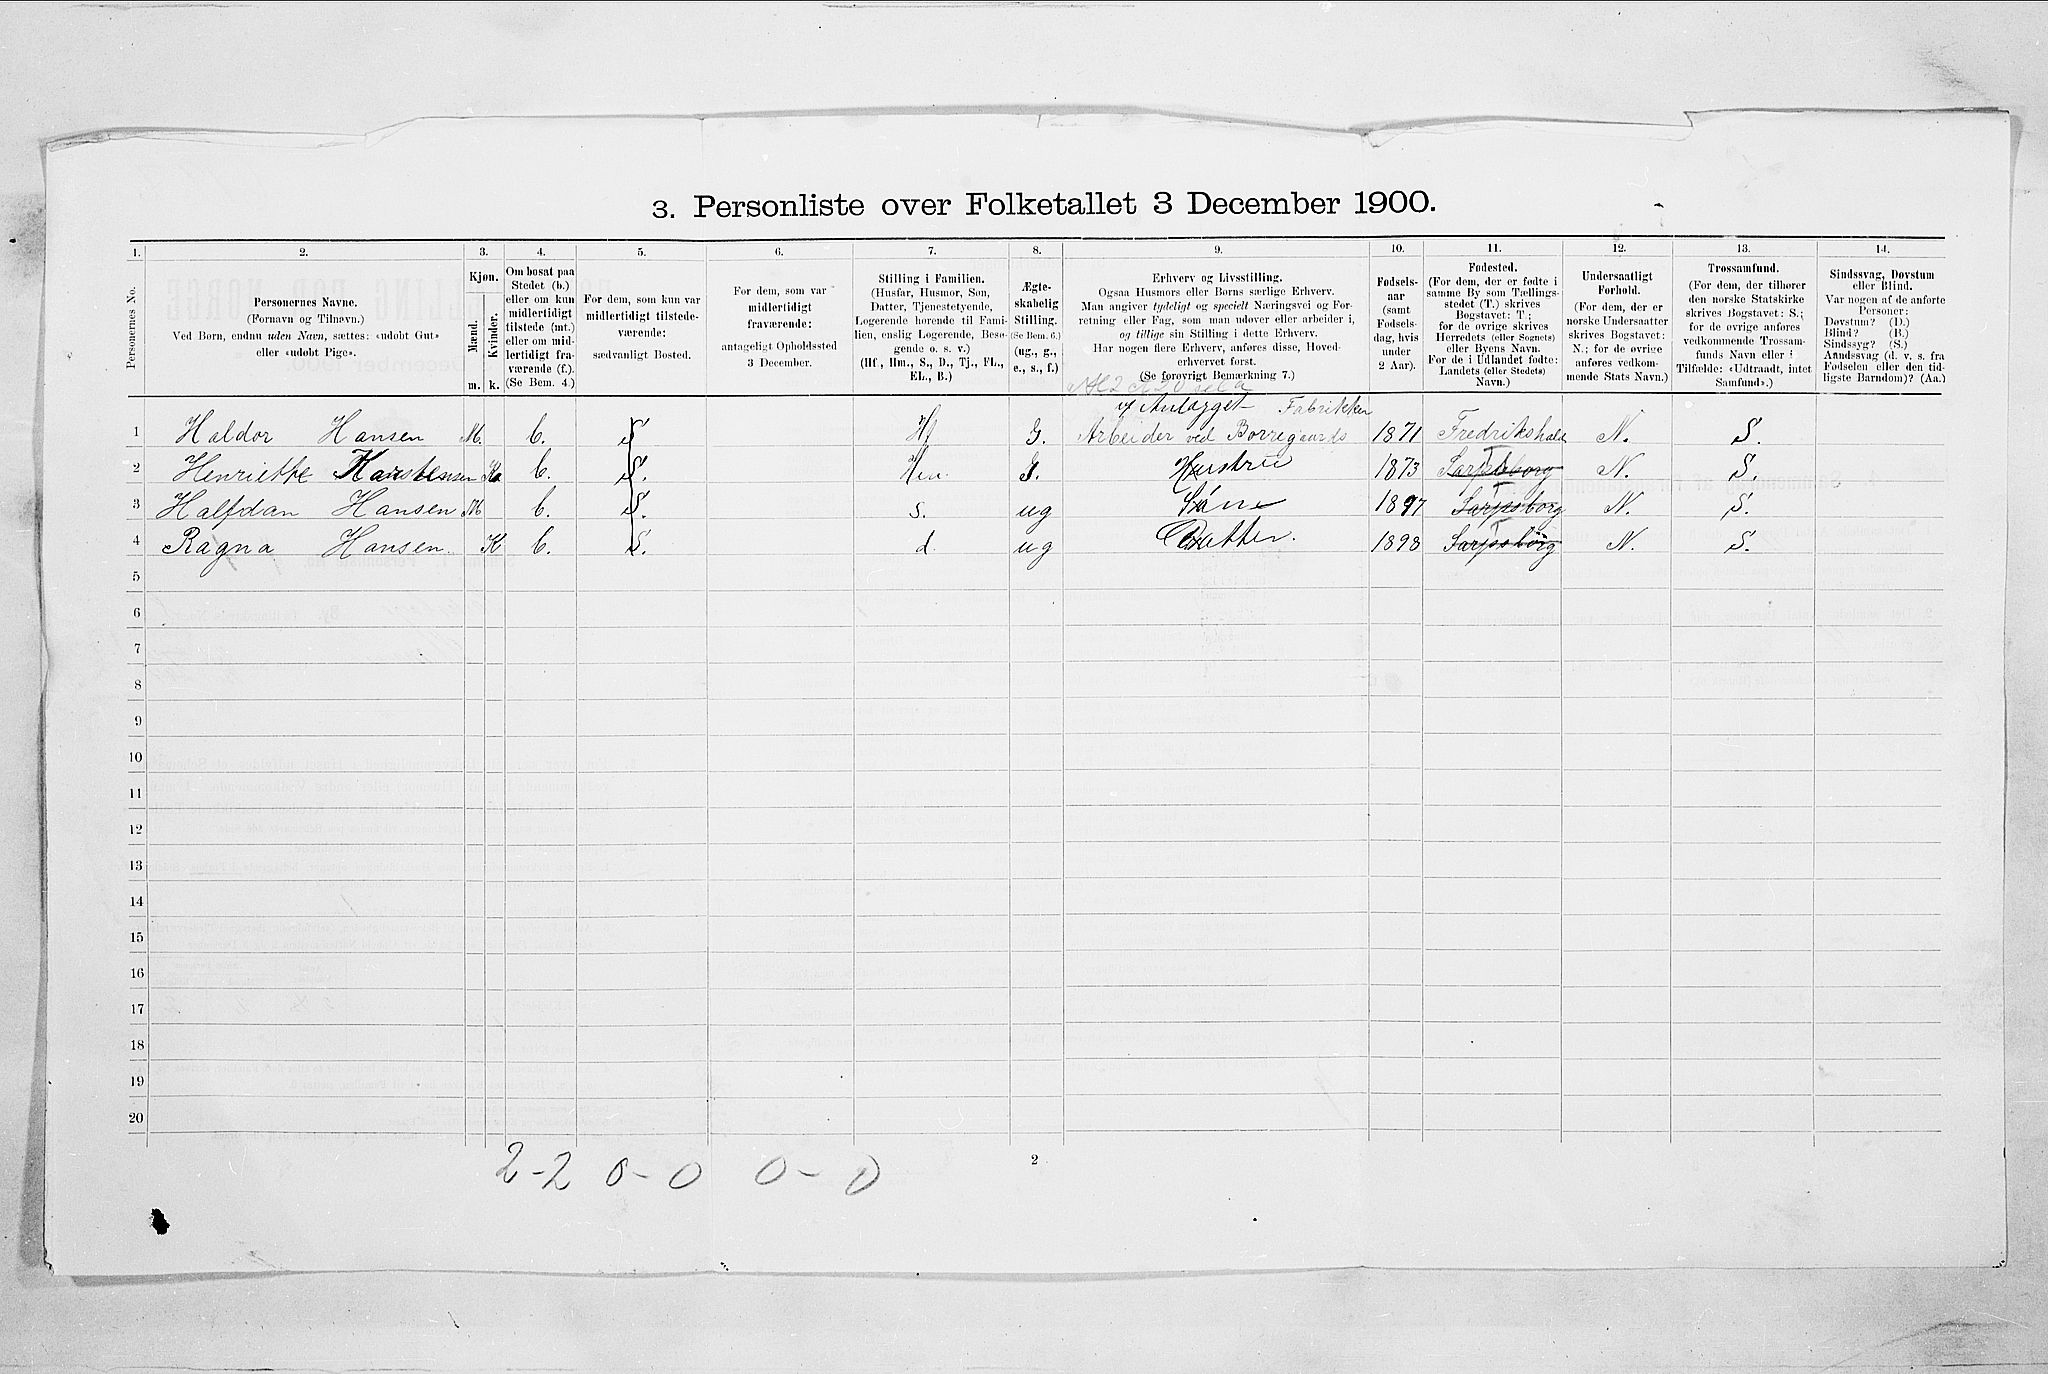 3. Personliste over Folketallet 3 December 1900.
1. 2. 3. 4. 5. 6. 7. 8. 9. 10. 11. 12. 13. 14.
Personernes No.
Personernes Navne.
(Fornavn og Tilnavn.)
Ved Børn, endnu uden Navn, sættes: «udøbt Gut»
eller «udøbt Pige».
Kjøn.
Mænd.
Kvinder.
m. k.
Om bosat paa
Stedet (b.)
eller om kun
midlertidigt
tilstede (mt.)
eller om mid-
lertidigt fra-
værende (f.)
(Se Bem. 4.)
For dem, som kun var
midlertidigt tilstede-
værende:
sædvanligt Bosted.
For dem, som var
midlertidigt
fraværende:
antageligt Opholdssted
3 December.
Stilling i Familien.
(Husfar, Husmor, Søn,
Datter, Tjenestetyende,
Logerende hørende til Fami-
lien, enslig Logerende, Besø-
gende o. s. v.)
(Hf., Hm., S., D., Tj., FL.,
EL., B.)
Ægte-
skabelig
Stilling.
(Se Bem. 6.)
(ug., g.,
e., s., f.)
Erhverv og Livsstilling.
Ogsaa Husmors eller Børns særlige Erhverv.
Man angiver tydeligt og specielt Næringsvei og For-
retning eller Fag, som man udøver eller arbeider i,
og tillige sin Stilling i dette Erhverv.
Har nogen flere Erhverv, anføres disse, Hoved-
erhvervet først.
(Se forøvrigt Bemærkning 7.)
Fødsels-
aar
(samt
Fødsels-
dag, hvis
under
2 Aar).
Fødested.
(For dem, der er fødte i
samme By som Tællings-
stedet (T.) skrives
Bogstavet: T.;
for de øvrige skrives
Herredets (eller Sognets)
eller Byens Navn.
For de i Udlandet fødte:
Landets (eller Stedets)
Navn.)
Undersaatligt
Forhold.
(For dem, der er
norske Undersaatter
skrives Bogstavet:
N.; for de øvrige
anføres vedkom-
mende Stats Navn.)
Trossamfund.
(For dem, der tilhører
den norske Statskirke
skrives Bogstavet: S.;
for de øvrige anføres
vedkommende Trossam-
funds Navn eller i
Tilfælde: «Udtraadt, intet
Samfund».)
Sindssvag, Døvstum
eller Blind.
Var nogen af de anførte
Personer:
Døvstum? (D.)
Blind? (B.)
Sindssyg? (S.)
Aandssvag (d. v. s. fra
Fødselen eller den tid-
ligste Barndom)? (Aa.)
v Anlægget Fabrikker
1 Haldor Hansen M. b. S Hf G. Arbeider ved Borregaards 1871 Fredrikshald N. S.
2 Henriette Karstensen K b. S. Hm. G. Hustru 1873 Sarpsborg T N. S.
3 Halfdan Hansen M b. S. s. ug Søn 1897 Sarpsborg T N. S.
4 Ragna Hansen. K b. S. d. ug Datter. 1898 Sarpsborg T N. S.
5
6
7
8
9
10
11
12
13
14
15
16
17
18
19
20
2-2 0-0 0-0
2